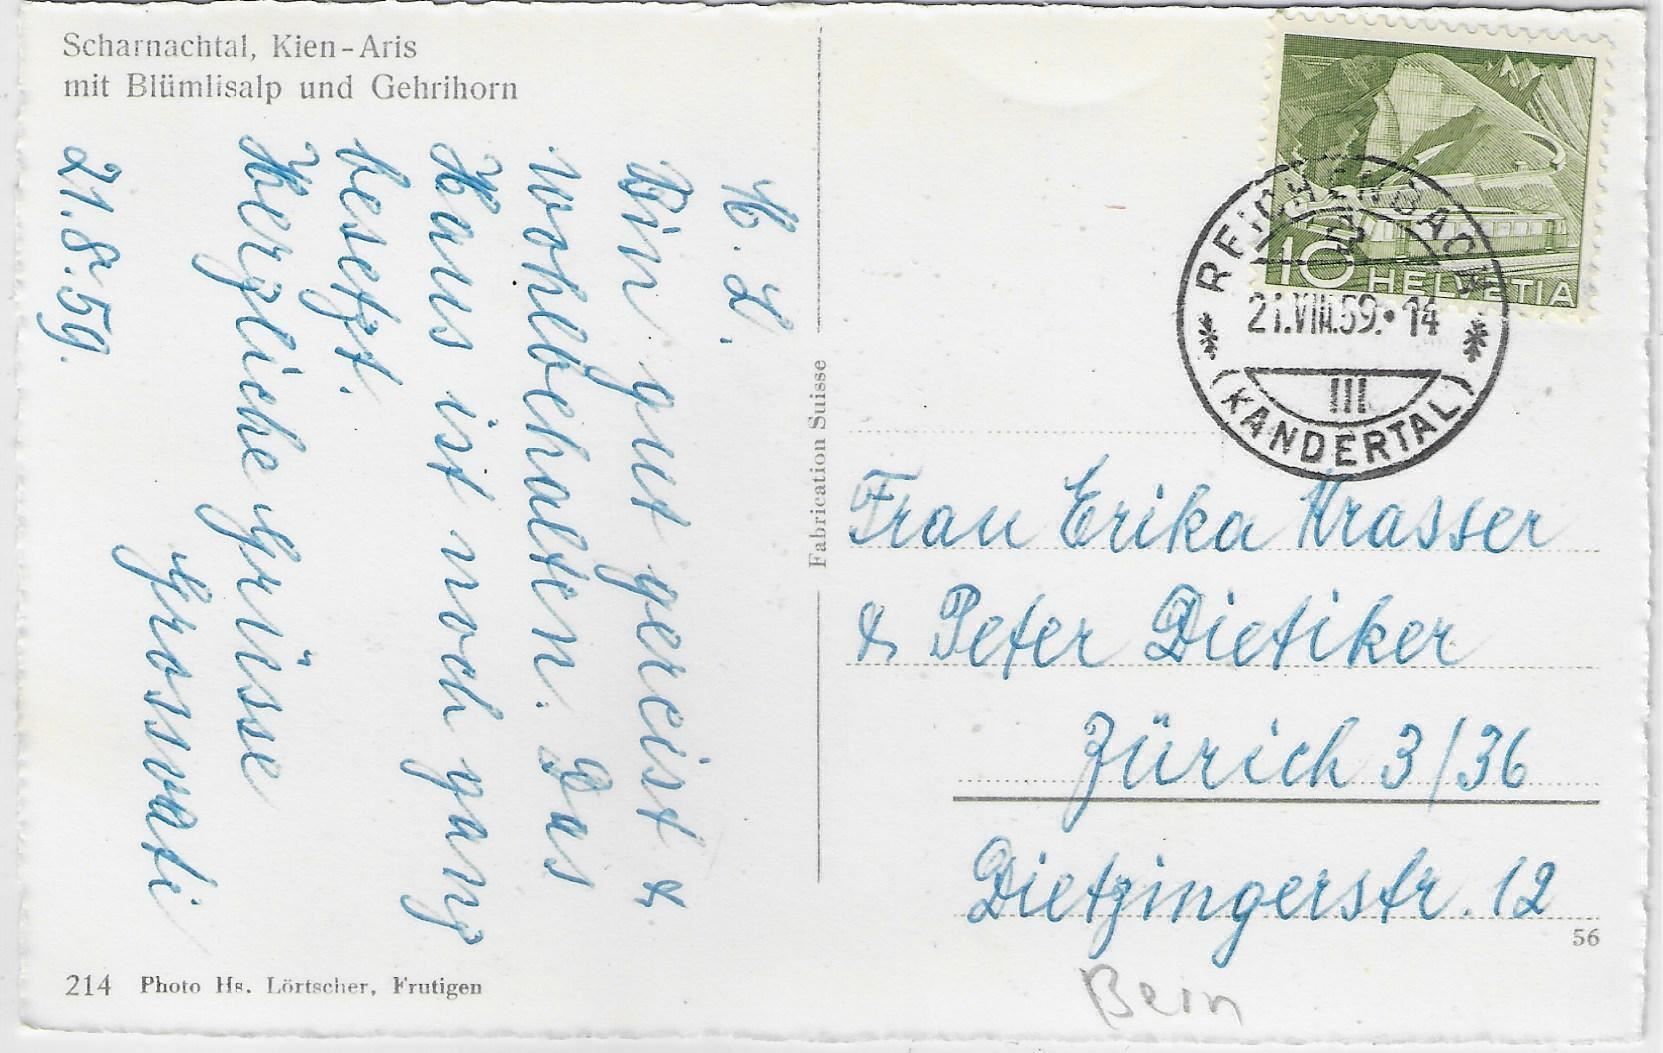 Scharnachtal, Kien-Aris
mit Blümlisalp und Gehrihorn
H. L.
Bin gut gereist &
wohlbehalten. Das
Haus ist noch ganz
besetzt.
Herzliche Grüsse
Grossvati
21.8.59.
214 Photo Hs. Lörtscher, Frutigen
Fabrication Suisse
10 HELVETIA
REICHENBACH
21.VIII.59.•14
III
(KANDERTAL)
Frau Erika Krasser
& Peter Dietiker
Zürich 3/36
Dietzingerstr. 12
56
Bern